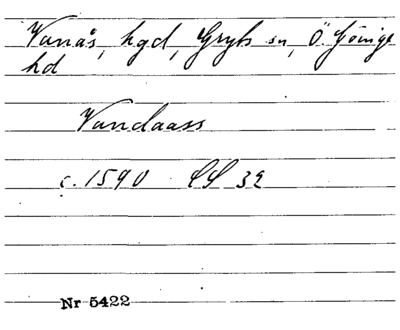 Vanås, hgd, Gryts sn, Ö. Göinge
hd
Vandaass
c. 1590 LS 32
Nr 5422